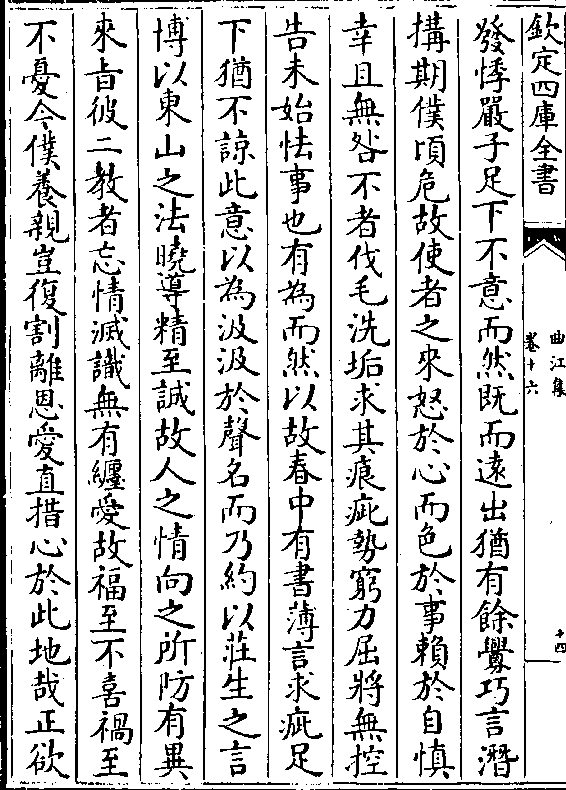 欽定四庫全書
曲江集
卷十六
十四
發悸嚴子足下不意而然既而遠出猶有餘釁巧言潛
搆期僕頃危故使者之來怒於心而色於事賴於自慎
幸且無咎不者伐毛洗垢求其痕疵勢窮力屈將無控
告未始怯事也有為而然以故春中有書薄言求疵足
下猶不諒此意以為汲汲於聲名而乃約以莊生之言
博以東山之法曉導精至誠故人之情向之所防有異
來㫖彼二教者忘情滅識無有纏愛故福至不喜禍至
不憂今僕養親豈復割離恩愛直措心於此地哉正欲